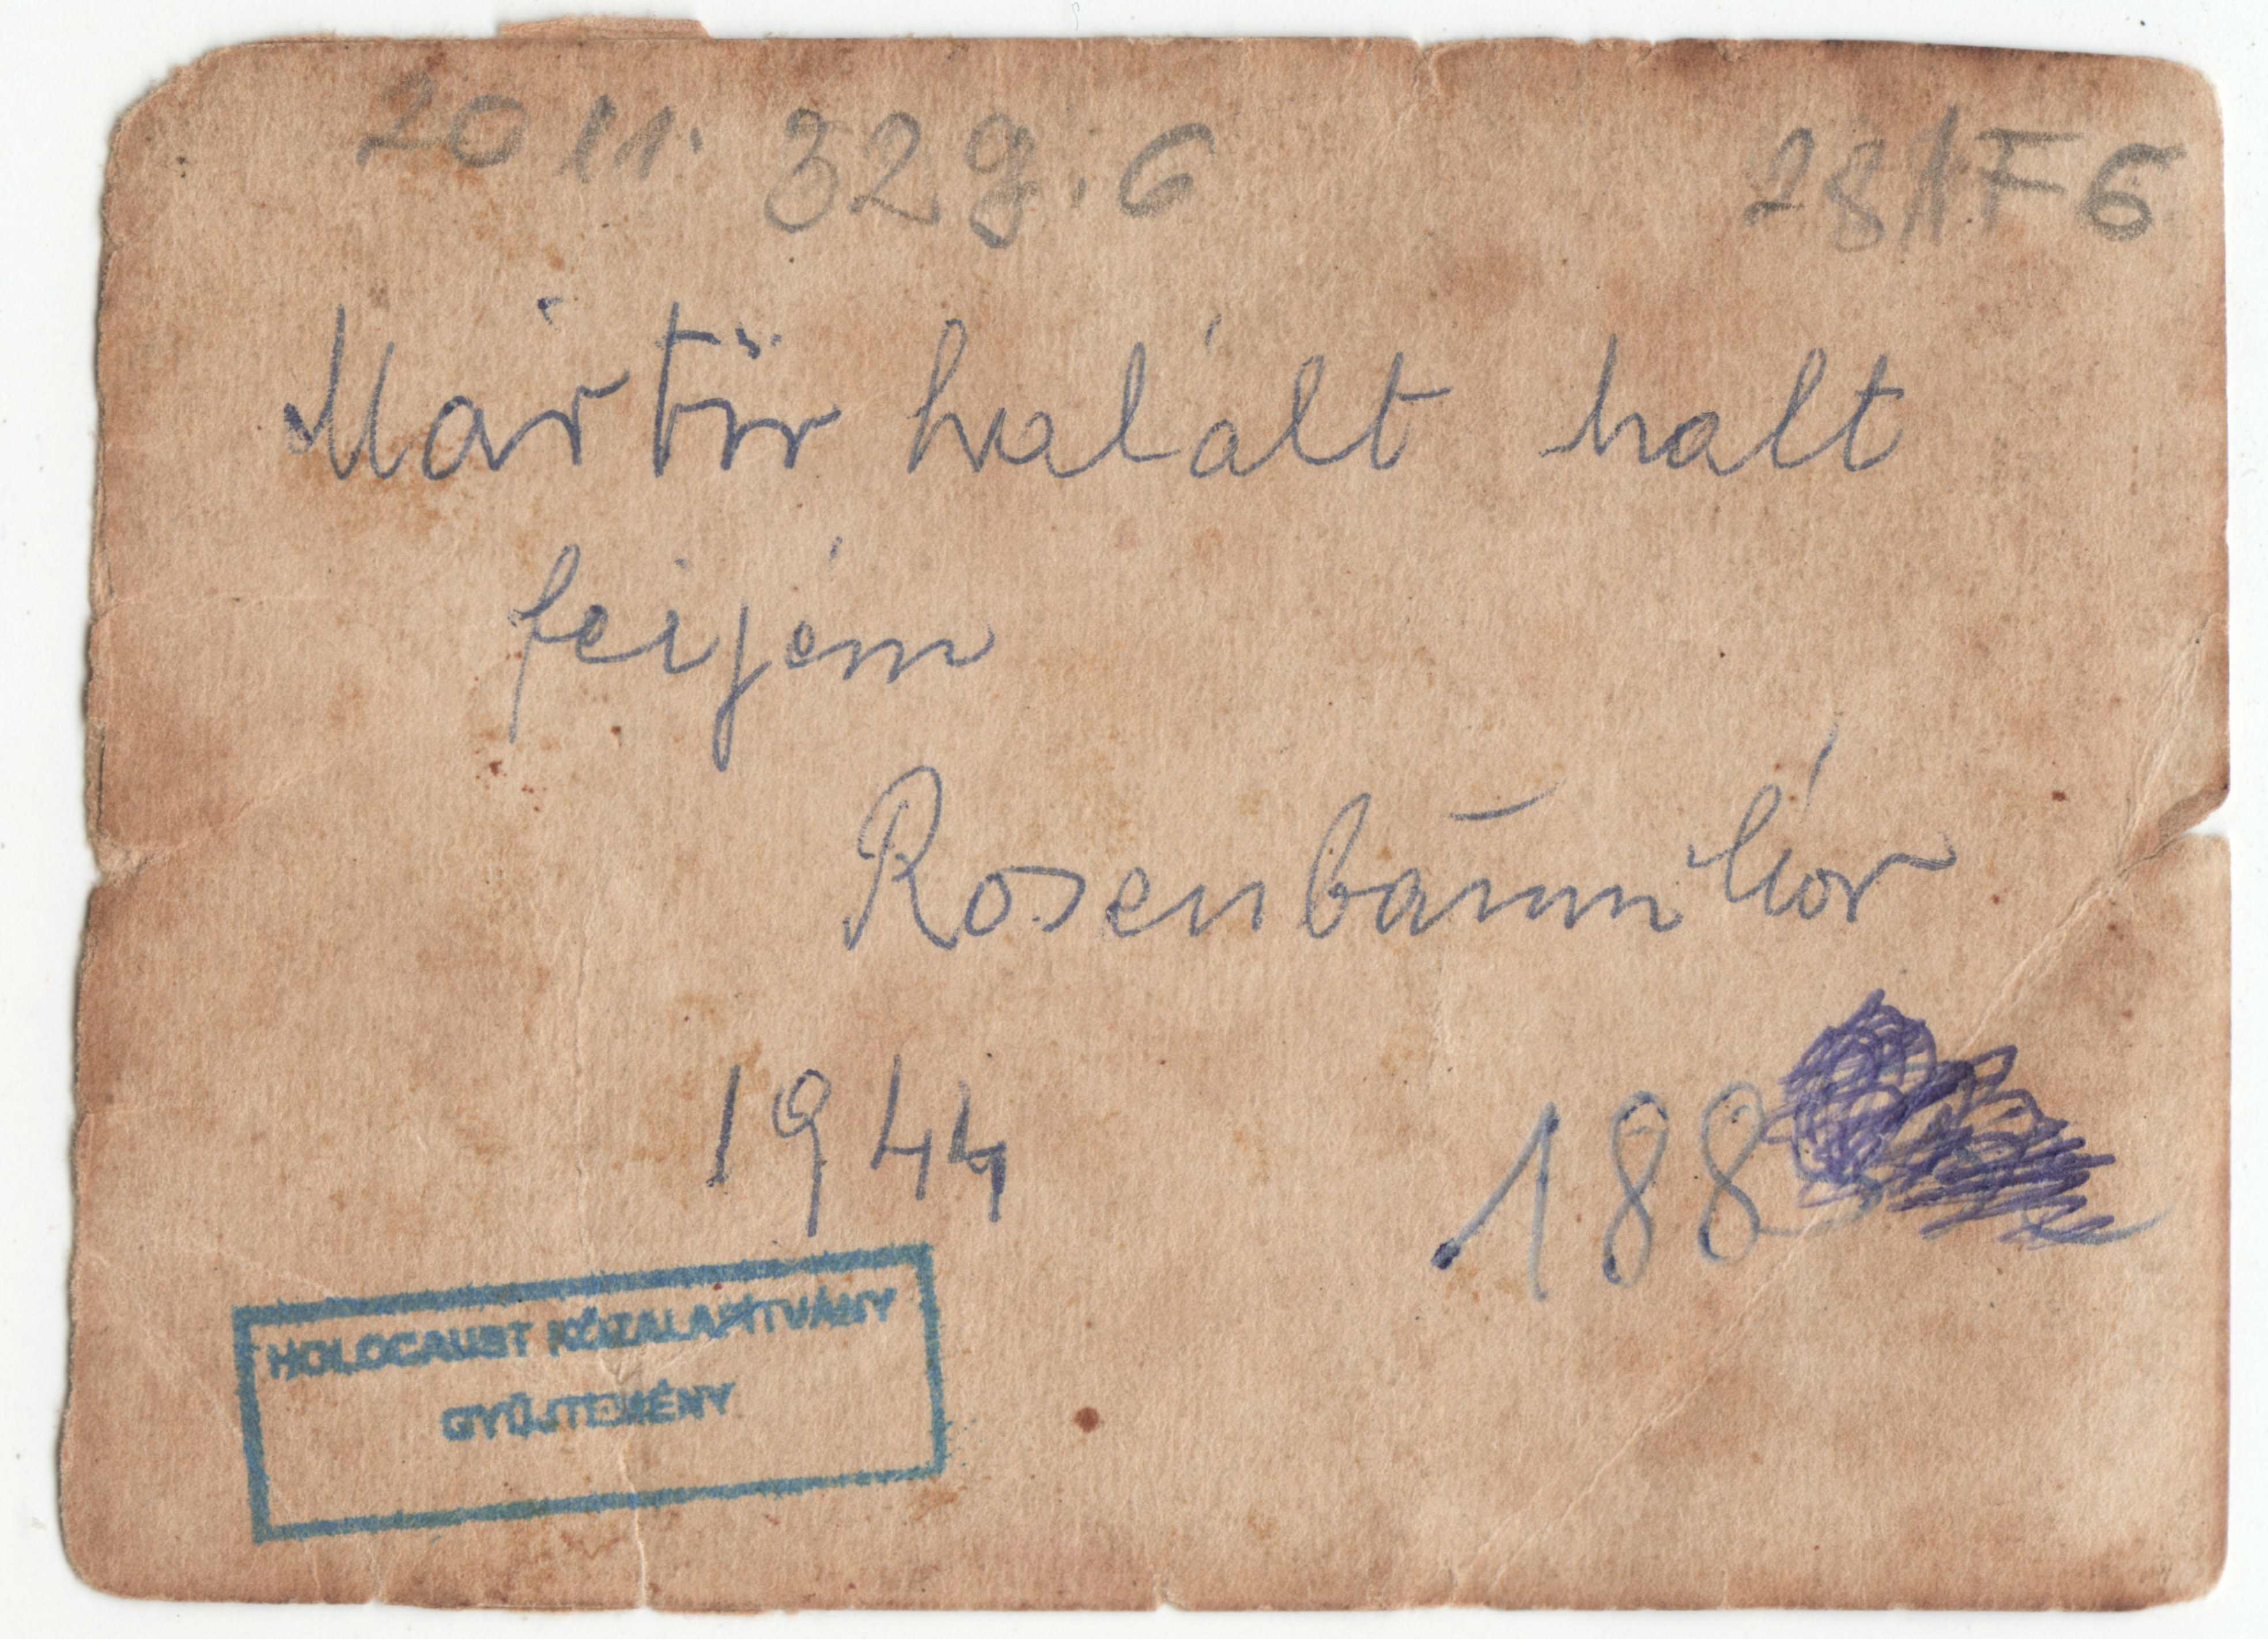 2011. 329. 6 28/1F6
Mártür halált halt
feijém
Rosenbaum
1944 188
HOLOCAUST KÖZALAPÍTVÁNY
GYŰJTEMÉNY